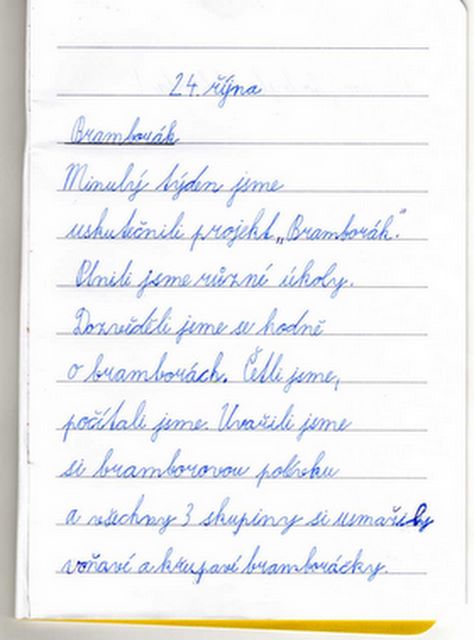 24. října
Bramborák
Minulý týden jsme
uskutečnili projekt „Bramborák."
Plnili jsme různé úkoly.
Dozvěděli jsme se hodně
o bramborách. Četli jsme,
počítali jsme. Uvařili jsme
si bramborovou polévku
a všechny 3 skupiny si usmažily
voňavé a křupavé bramboráčky.